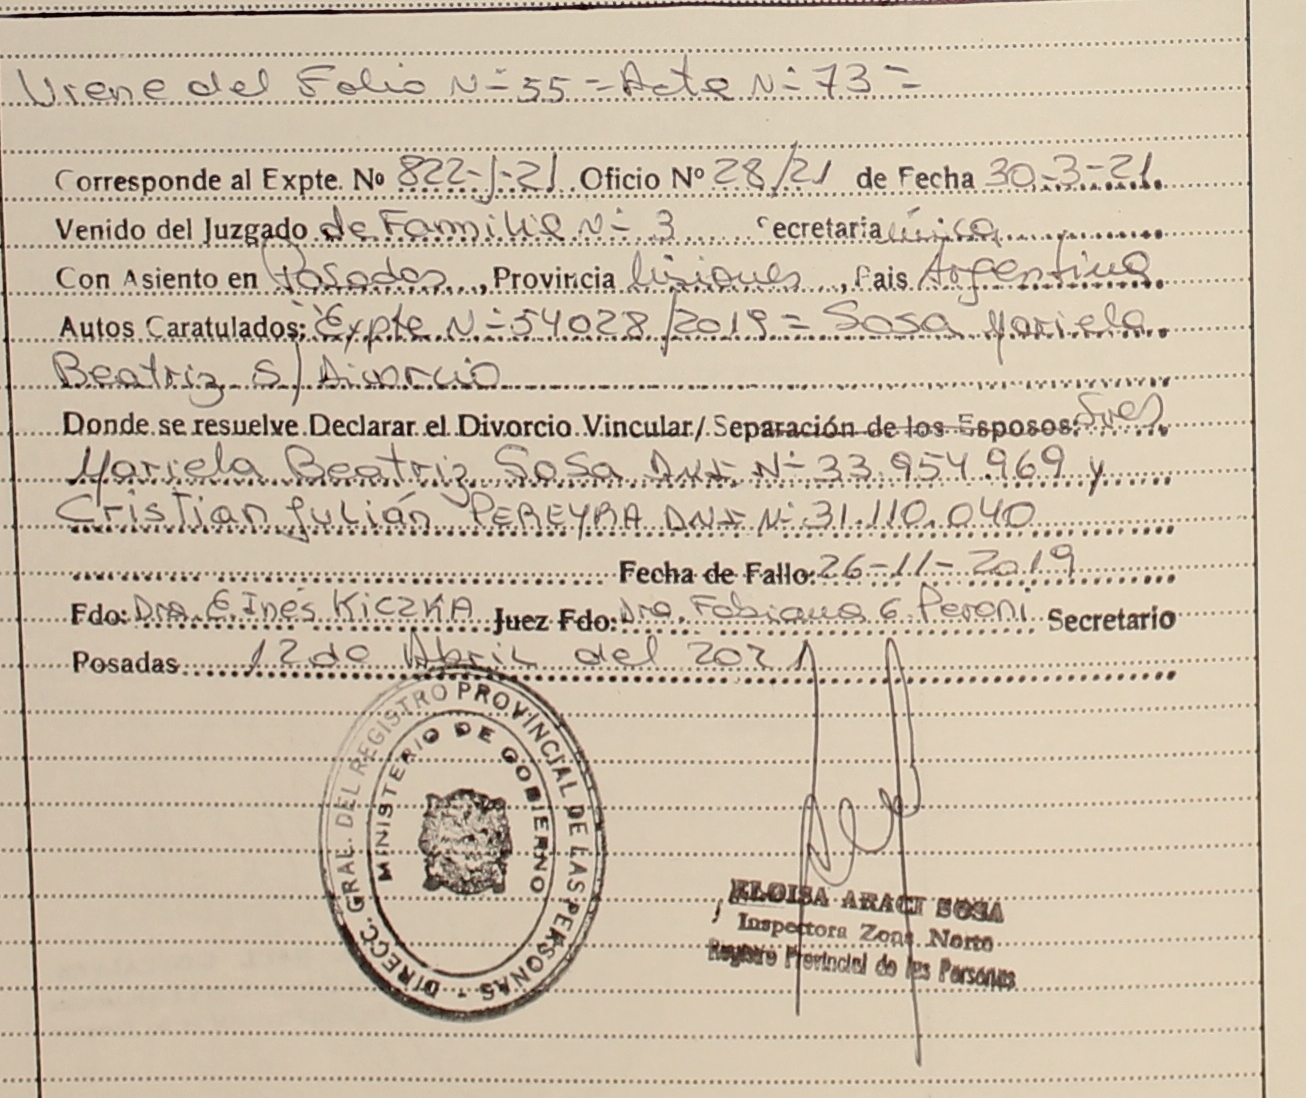 Viene del Folio N° 55 = Acta N° 73 =
Corresponde al Expte. Nº 822-J-21 Oficio Nº 28/21 de Fecha 30-3-21
Venido del Juzgado de Familia N° 3 Secretaria única
Con Asiento en Posadas, Provincia Misiones, Pais Argentina
Autos Caratulados: "Expte N° 54028/2019 = Sosa Mariela
Beatriz S/ Divorcio
Donde se resuelve Declarar el Divorcio Vincular/ Separación de los Esposos: Sres
Mariela Beatriz Sosa DNI N° 33.954.969 y
Cristian Julián PEREYRA DNI N° 31.110.040
Fecha de Fallo: 26-11-2019
Fdo: Dra. E. Inés KICZKA Juez Fdo: Dra. Fabiana G. Peroni Secretario
Posadas 12 de Abril del 2021
DIRECC. GRAL. DEL REGISTRO PROVINCIAL DE LAS PERSONAS -
MINISTERIO DE GOBIERNO
ELOISA ARACI SOSA
Inspectora Zona Norte
Registro Provincial de las Personas